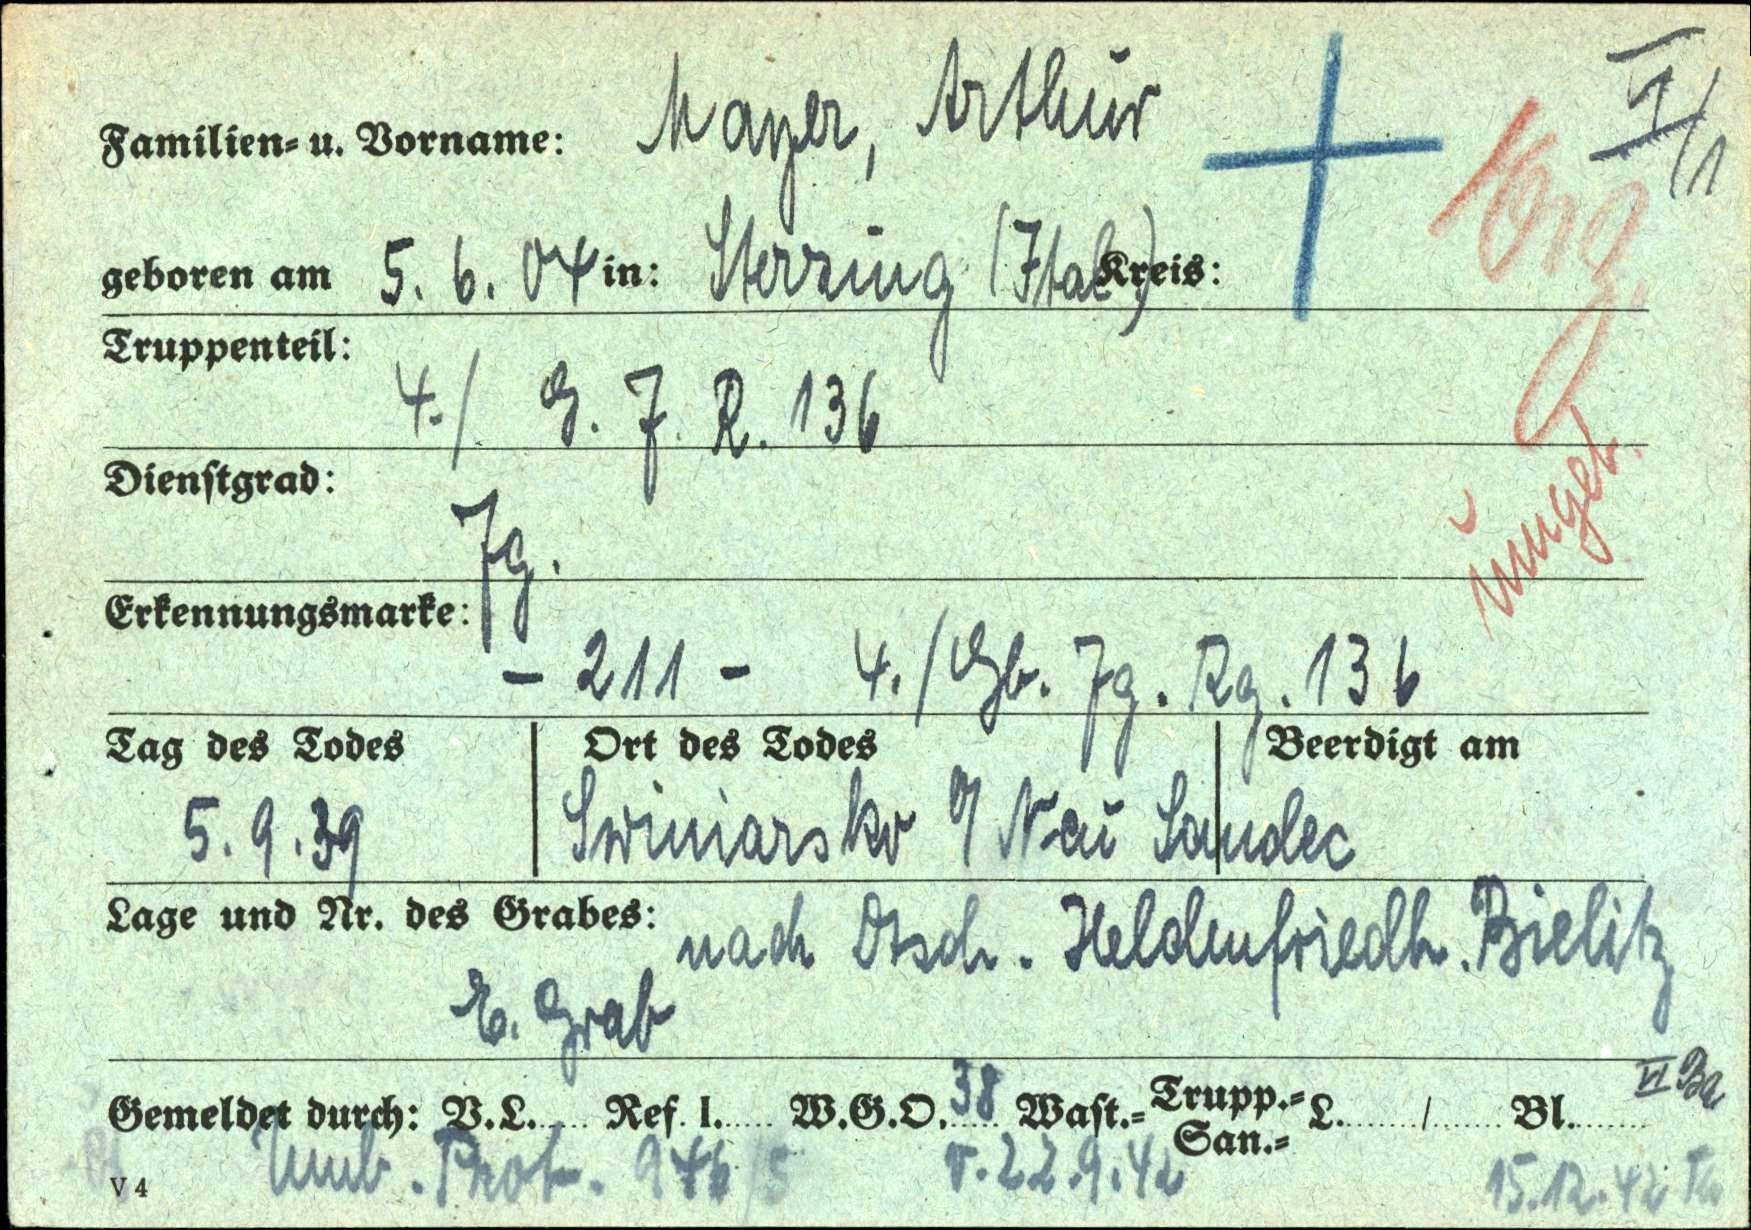 VI/1
Familien- u. Vorname: Mayer, Arthur
geboren am 5. 6. 04 in: Sterzing (Ital.) Kreis:
Truppenteil:
4./ G. J. R. 136
Dienstgrad:
Jg.
umgeb.
Erkennungsmarke:
- 211 - 4./Gb. Jg. Rg. 136
Tag des Todes Ort des Todes Beerdigt am
5. 9. 39 Swiniarsko b/ Neu Sandec
Lage und Nr. des Grabes: nach Dtsch. Heldenfriedh. Bielitz
E. Grab
VI Ba
Gemeldet durch: V.L. Ref. I. W.G.O. 38 Wast.= Trupp.= San.= L. / Bl.
Umb. Prot. 976/5 v. 22.9.42 15.12.42
V 4